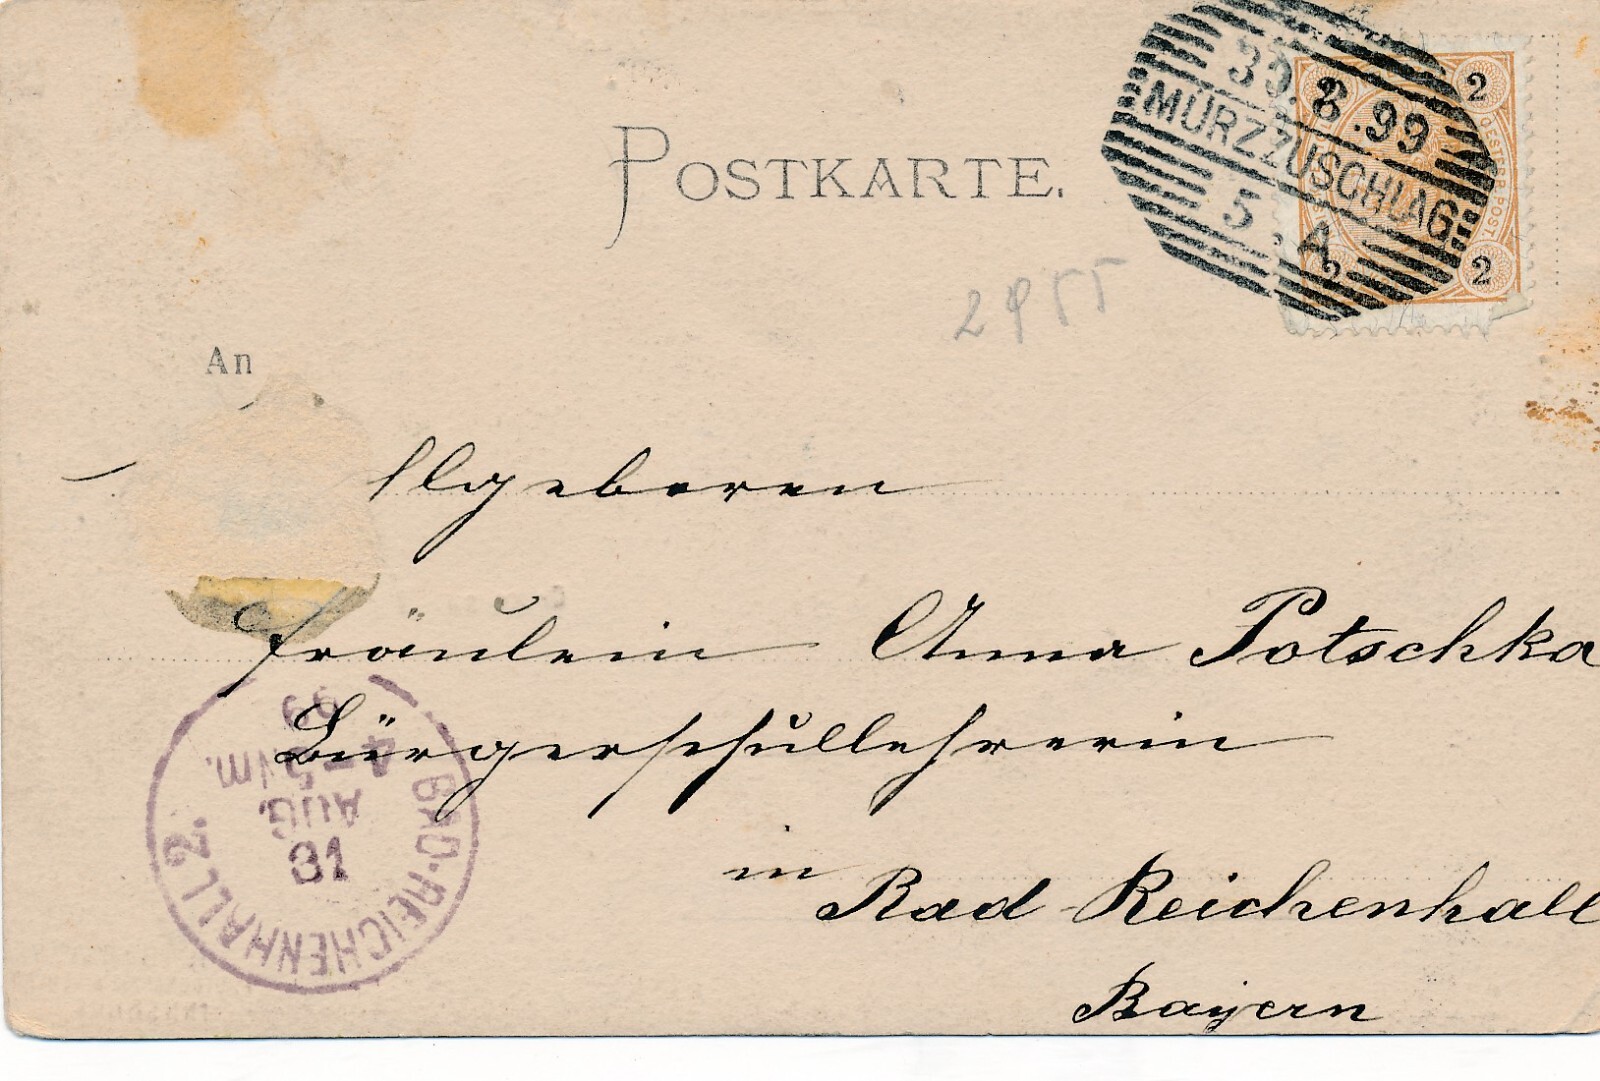 POSTKARTE.
30.8.99
MÜRZZUSCHLAG
5.A
2
2
2
OESTERR. POST.
2955
An
geboren
Fräulein Anna Potschka
Bürgerschullehrerin
in
Bad Reichenhall
Bayern
BAD-REICHENHALL 2.
31
AUG.
4-5 Nm.
99